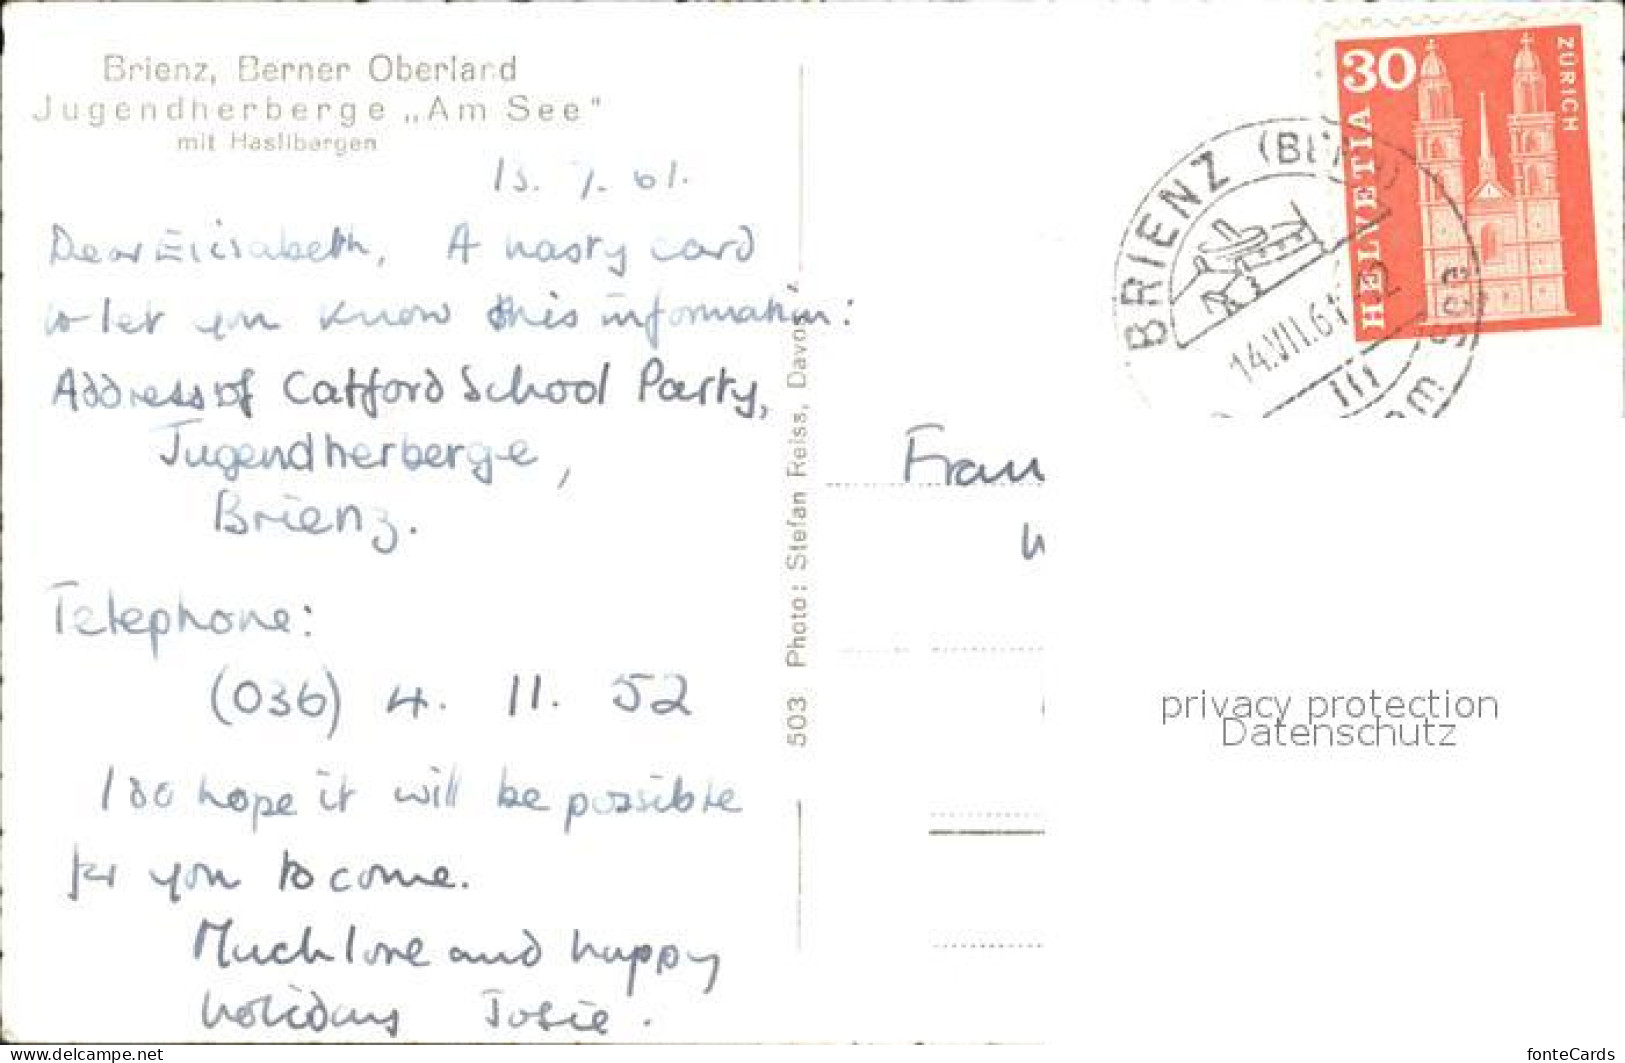 Brienz, Berner Oberland
Jugendherberge „Am See"
mit Haslibergen
13. 7. 61.
Dear Elisabeth, A nasty card
to let you know this information:
Address of Catford School Party,
Jugendherberge,
Brienz.
Telephone:
(036) 4. 11. 52
I do hope it will be possible
for you to come.
Much love and happy
holidays Josie.
503 Photo: Stefan Reiss, Davos
30
HELVETIA
ZÜRICH
BRIENZ
14.VII.61
Frau
privacy protection
Datenschutz
https://www.delcampe.net
fonteCards